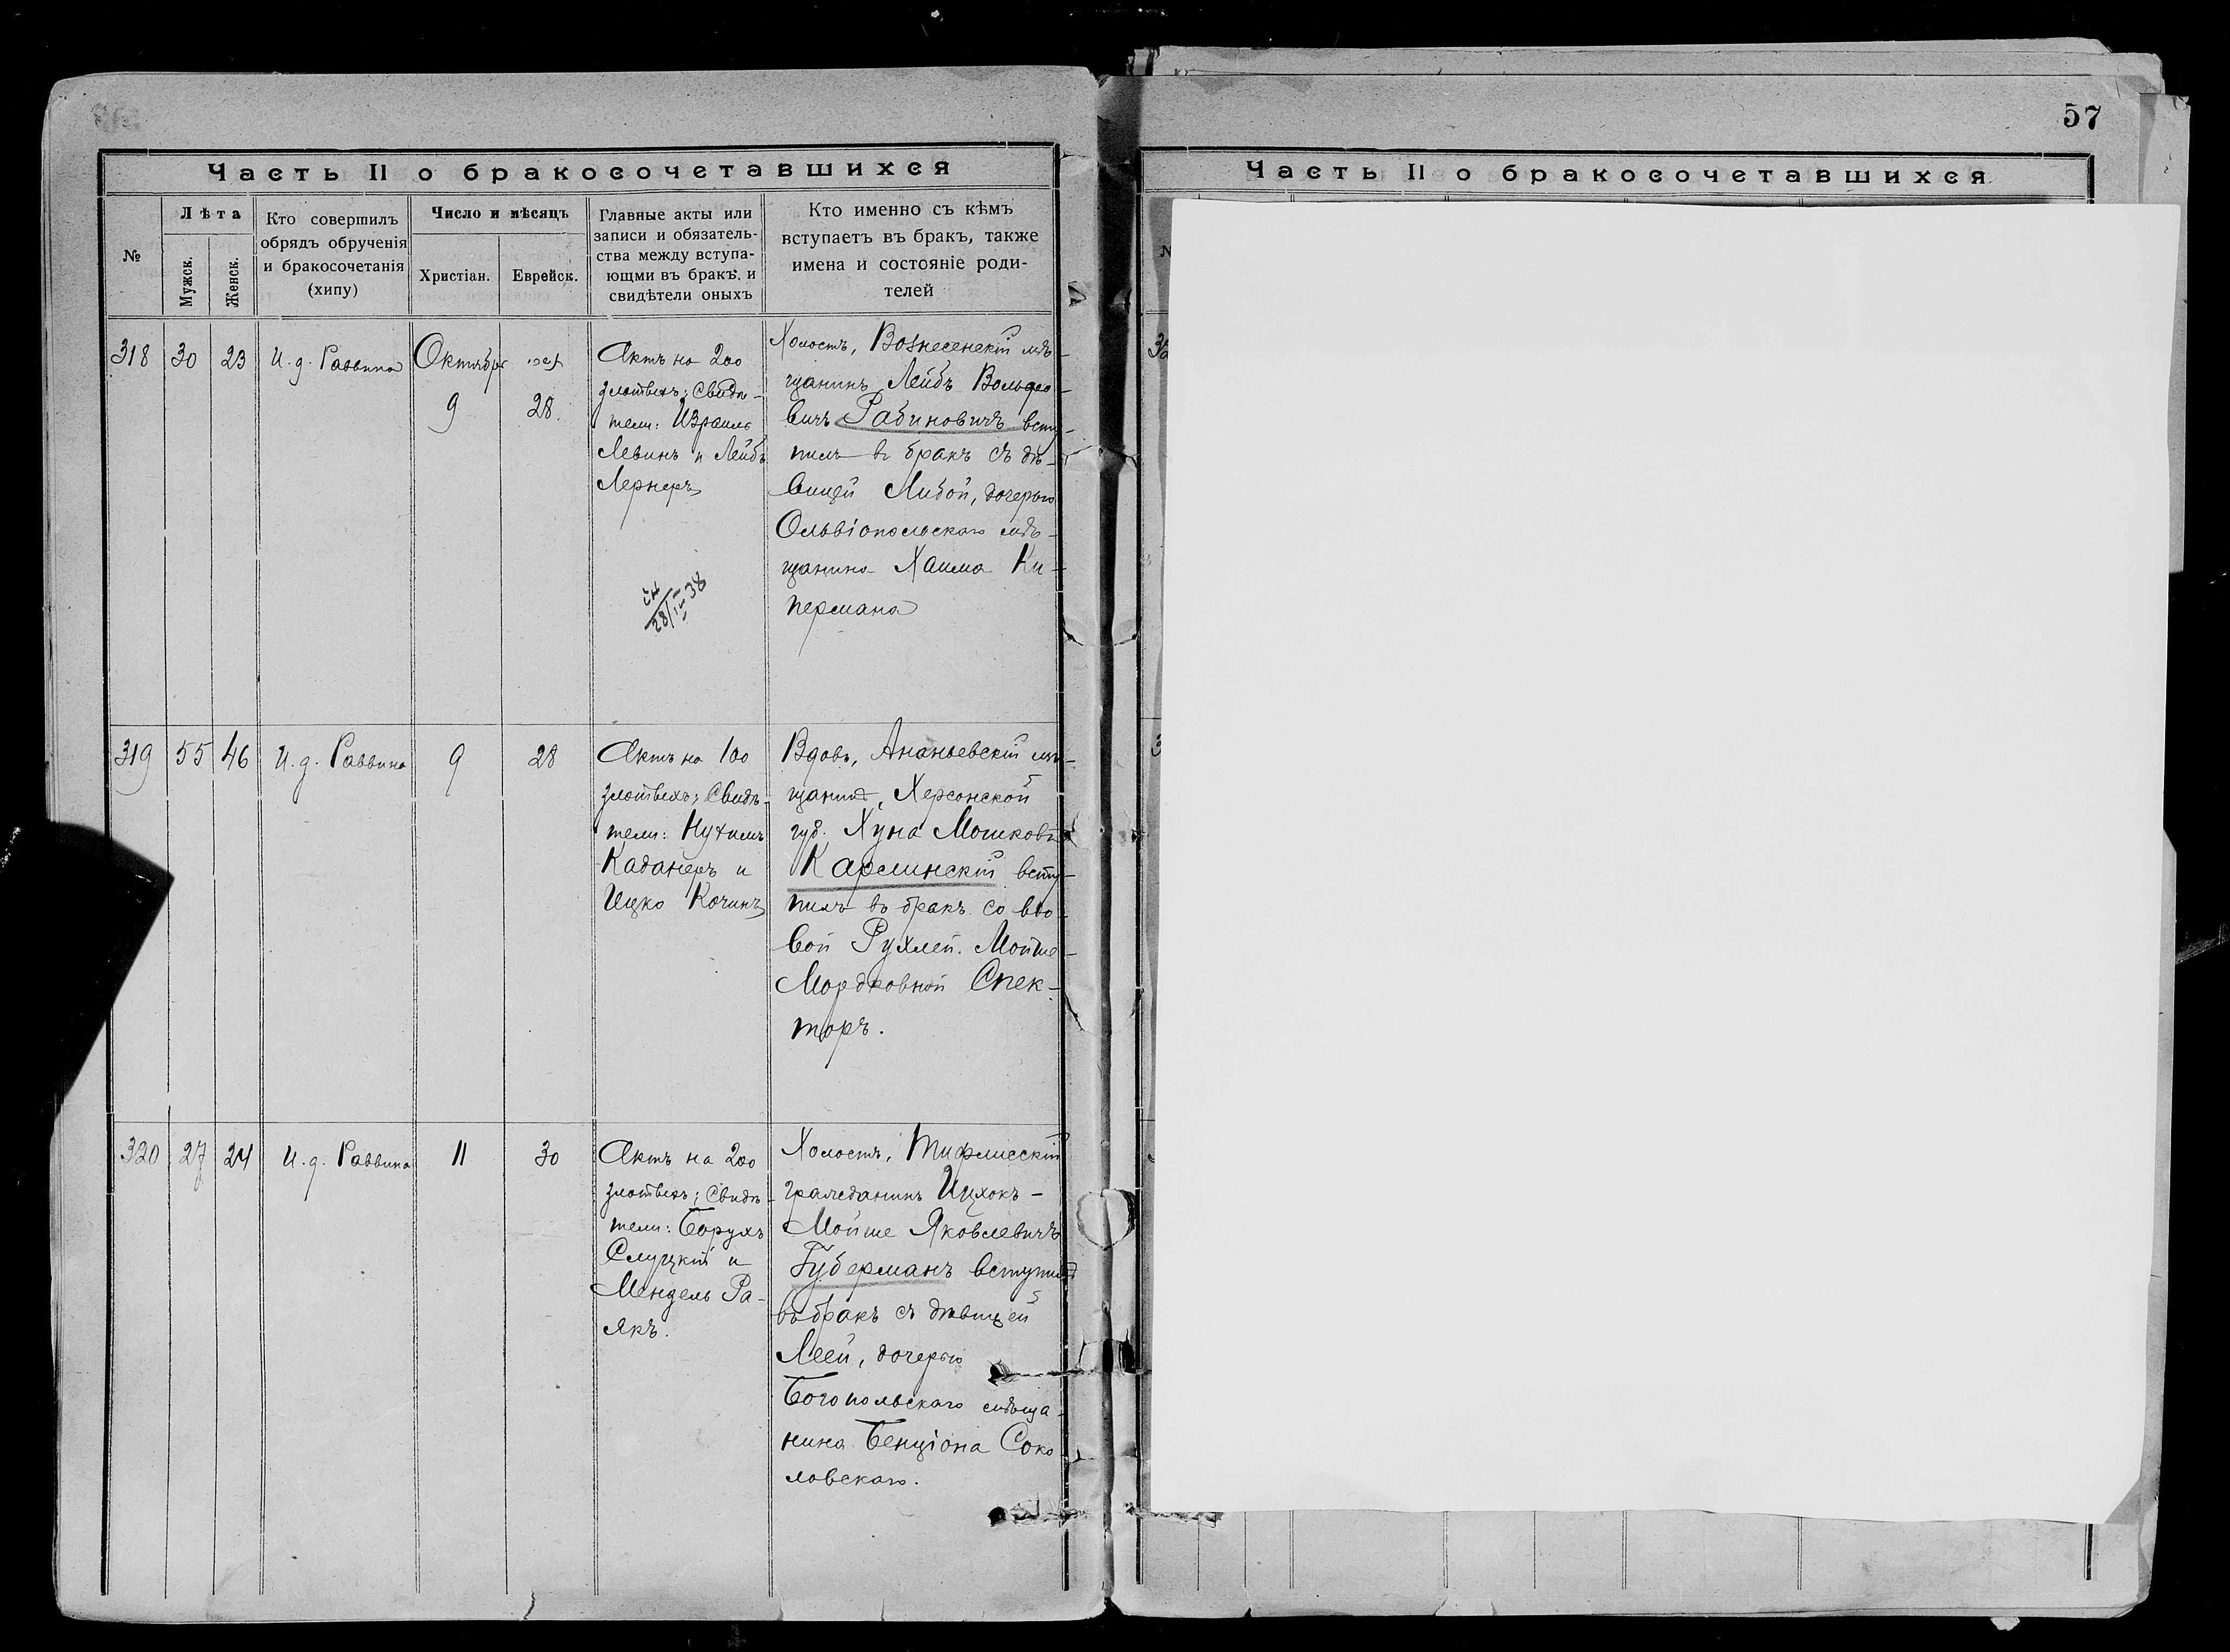 57
Часть II о бракосочетавшихся
№
Лѣта
Мужск.
Женск.
Кто совершилъ
обрядъ обрученія
и бракосочетанія
(хипу)
Число и мѣсяцъ
Христіан.
Еврейск.
Главные акты или
записи и обязатель-
ства между вступа-
ющми въ бракъ и
свидѣтели оныхъ
Кто именно съ кѣмъ
вступаетъ въ бракъ, также
имена и состояніе роди-
телей
318
30
23
И. д. Раввина
Октября
9
28.
Актъ на 200
злотыхъ; Свидѣ-
тели: Израиль
Левинъ и Лейбъ
Лернеръ
28/III 38
Холостъ, Вознесенскій мѣ-
щанинъ Лейбъ Вольфо-
вичъ Рабиновичъ всту-
пилъ въ бракъ съ дѣ-
вицей Либой, дочерью
Ольвіопольскаго мѣ-
щанина Хаима Ки-
пермана
319
55
46
И. д. Раввина
9
28
Актъ на 100
злотыхъ; Свидѣ-
тели: Нухимъ
Каданеръ и
Ицко Кочинъ
Вдовъ, Ананьевскій мѣ-
щанинъ, Херсонской
губ. Хуна Мошковъ
Карлинскій всту-
пилъ въ бракъ со вдо-
вой Рухлей. Мойше-
Мордковной Спек-
торъ.
320
27
24
И. д. Раввина
11
30
Актъ на 200
злотыхъ; Свидѣ-
тели: Борухъ
Слуцкій и
Мендель Ра-
якъ.
Холостъ, Тифлисскій
гражданинъ Ицхокъ-
Мойше Яковлевичъ
Губерманъ вступилъ
въ бракъ съ дѣвицей
Леей, дочерью
Богопольскаго мѣща-
нина Бенціона Соко-
ловскаго.
Часть II о бракосочетавшихся